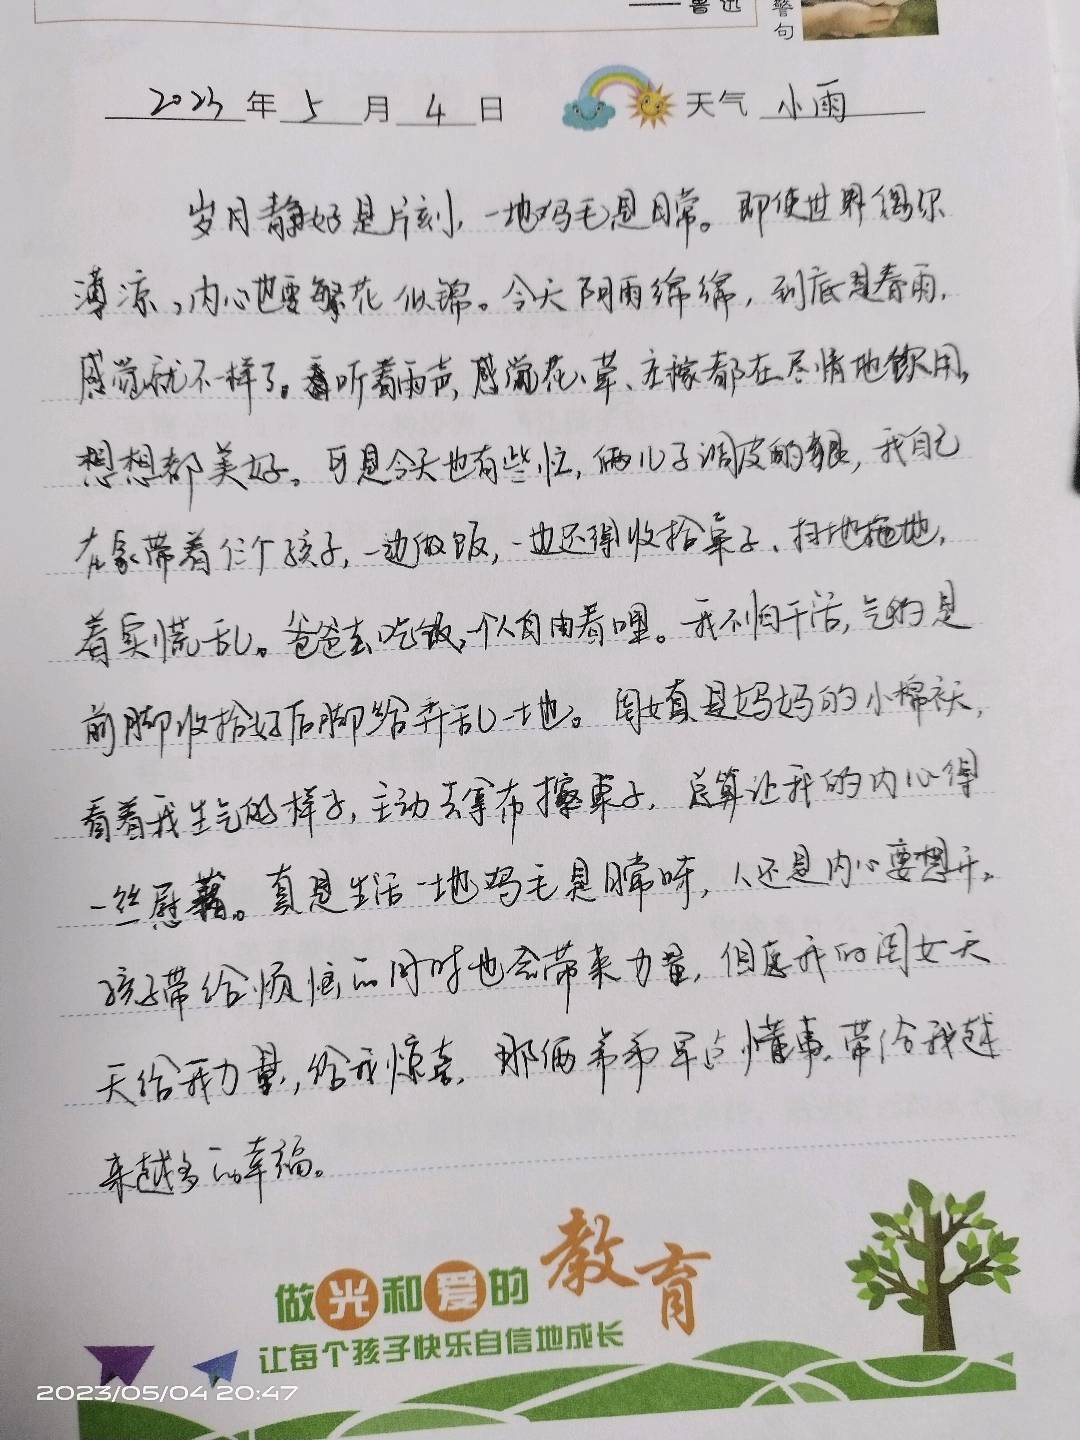 ——鲁迅
警句
2023年5月4日 天气 小雨
岁月静好是片刻，一地鸡毛是日常。即使世界偶尔
薄凉，内心也要繁花似锦。今天阴雨绵绵，到底是春雨，
感觉就不一样了。听着雨声，感觉花、草、庄稼都在尽情地饮用，
想想都美好。可是今天也有些忙，俩儿子调皮的狠，我自己
在家带着仨个孩子，一边做饭，一边还得收拾桌子、扫地拖地，
着实慌乱。爸爸去吃饭，个人自由着哩。我不怕干活，气的是
前脚收拾好后脚给弄乱一地。闺女真是妈妈的小棉袄，
看着我生气的样子，主动去拿布擦桌子，总算让我的内心得
一丝慰藉。真是生活一地鸡毛是日常呀，人还是内心要想开。
孩子带给烦恼的同时也会带来力量，但愿我的闺女天
天给我力量，给我惊喜，那俩弟弟早点懂事，带给我越
来越多的幸福。
做光和爱的教育
让每个孩子快乐自信地成长
2023/05/04 20:47